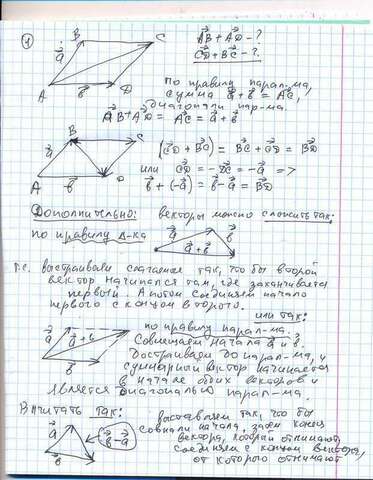 1
B
C
a⃗
A
b⃗
D
A⃗B + A⃗D - ?
C⃗D + B⃗C - ?
по правилу парал-ма,
сумма a⃗ + b⃗ = A⃗C,
диагонали пар-ма.
A⃗B + A⃗D = A⃗C = a⃗ + b⃗
B
C
a⃗
A
b⃗
D
(C⃗D + B⃗C) = B⃗C + C⃗D = B⃗D
или C⃗D = -D⃗C = -a⃗ =>
b⃗ + (-a⃗) = b⃗ - a⃗ = B⃗D
Дополнительно: векторы можно сложить так:
по правилу Δ-ка
a⃗
b⃗
a⃗ + b⃗
т.е. выстраиваем слагаемое так, что бы второй
вектор начинался там, где заканчивается
первый. А потом соединяем начало
первого с концом второго.
или так:
по правилу парал-ма.
a⃗
a⃗ + b⃗
b⃗
Совмещаем начала a⃗ и b⃗.
Достраиваем до парал-ма, и
суммарный вектор начинается
в начале обоих векторов и
является диагональю парал-ма.
Вычитать так:
a⃗
b⃗
b⃗ - a⃗
выставляем так, что бы
совпали начала, затем конец
вектора, который отнимают,
соединяем с концом вектора,
от которого отнимают